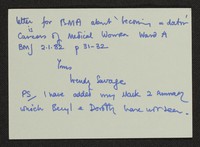 letter for BMA about 'becoming a doctor'
is Careers of Medical Women Ward A
BMJ 2.1.82 p 31-32
Yours
Wendy Savage
PS/ I have added my Mark 2 Summary
which Beryl & Dorothy have not seen.